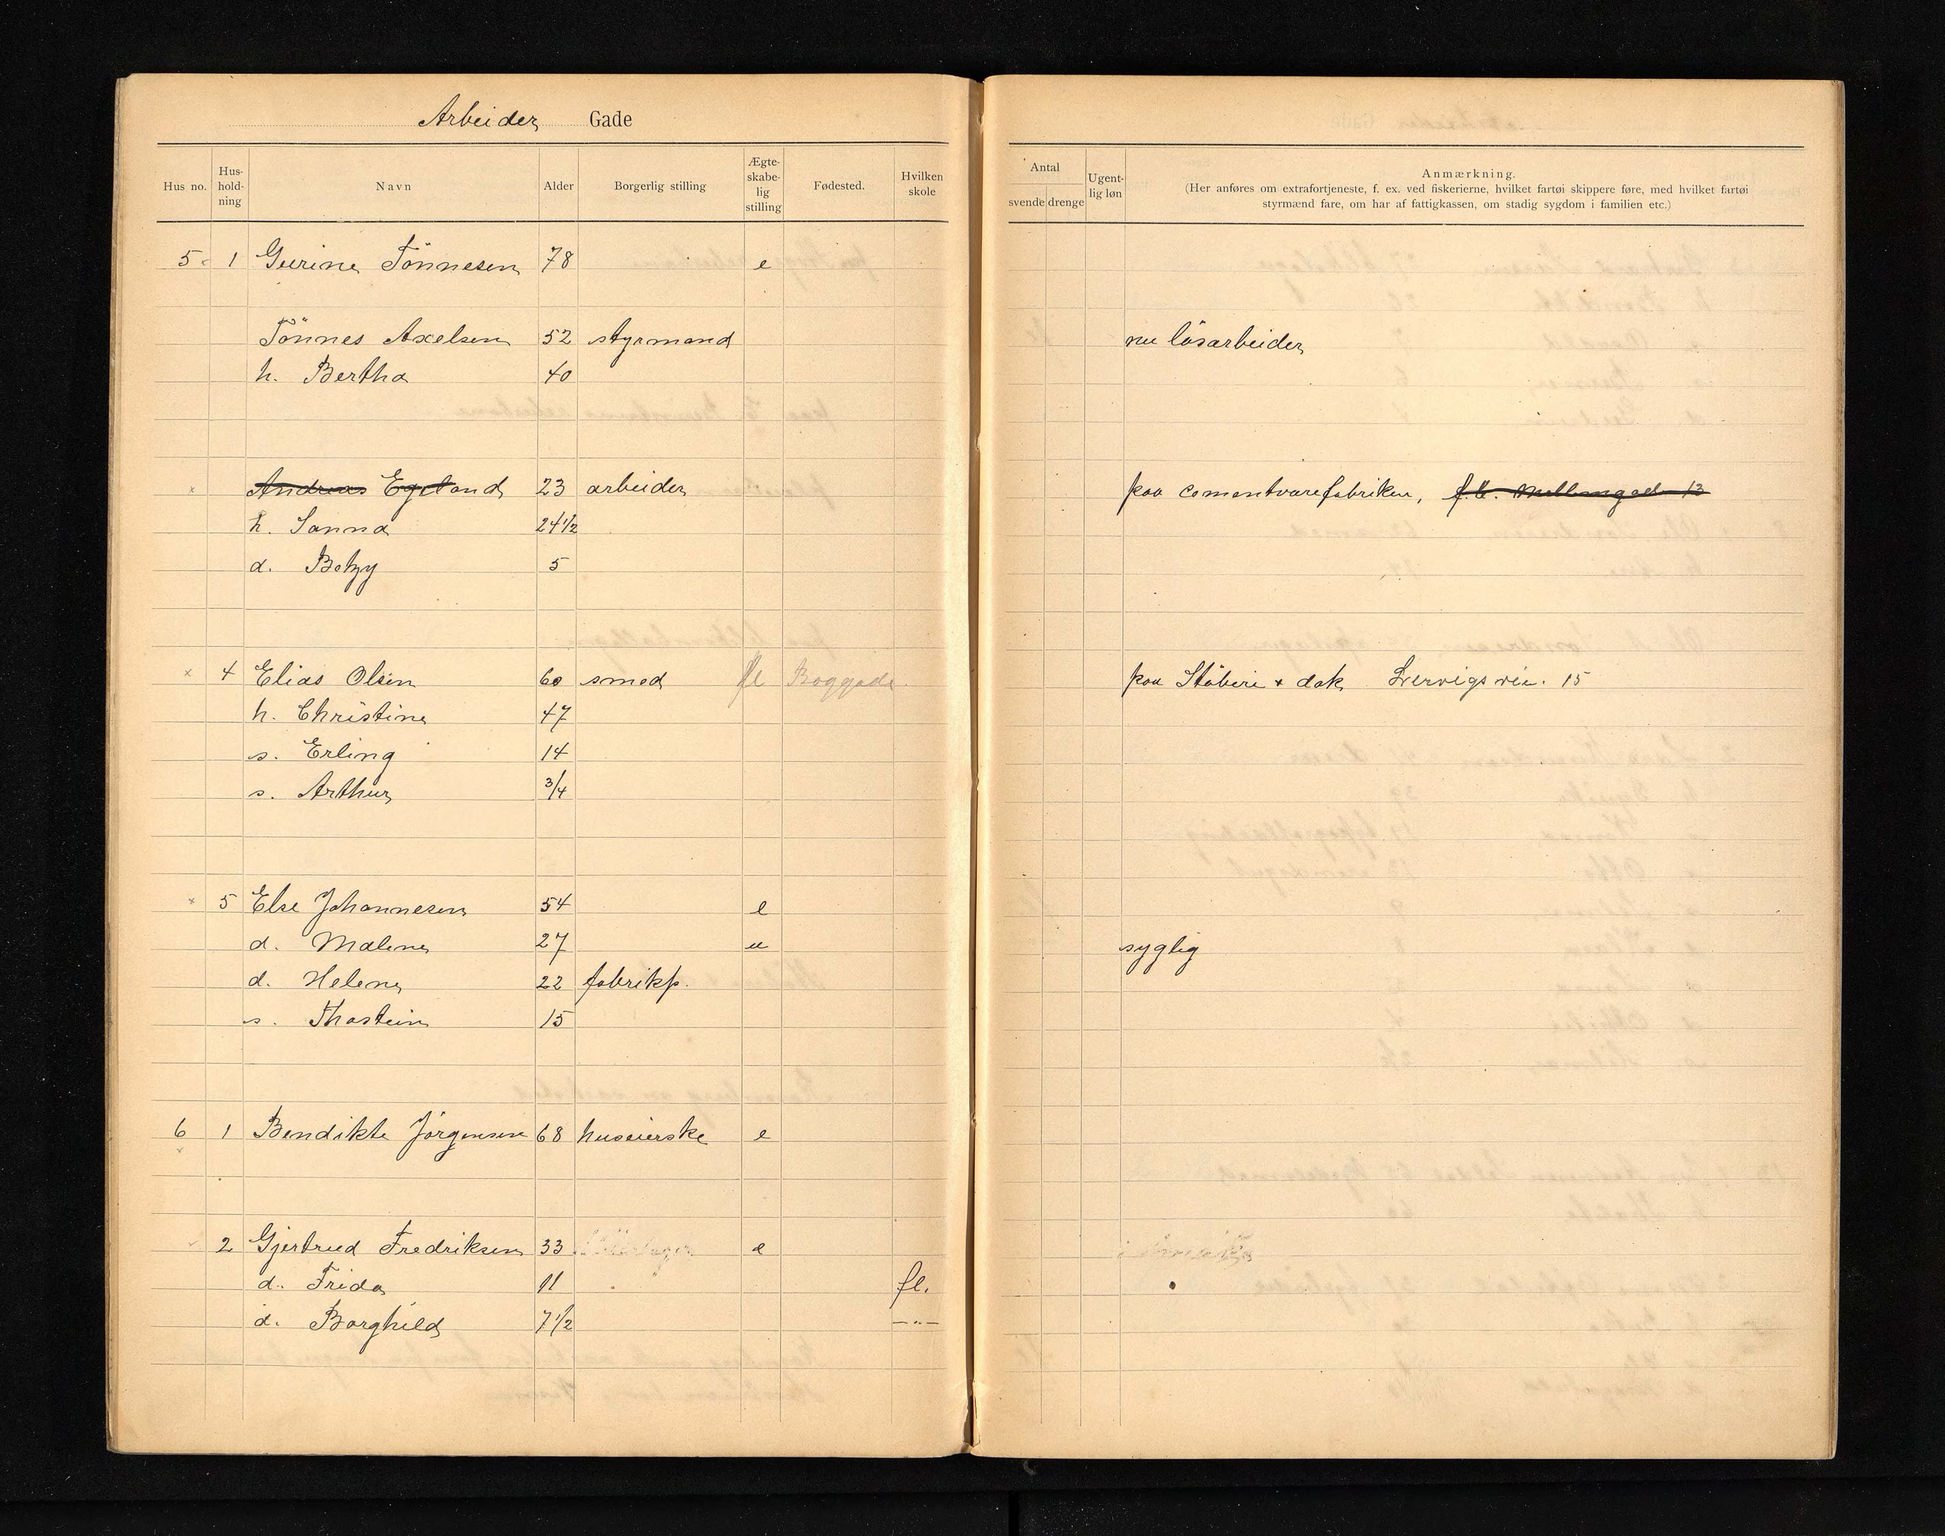 Arbeider Gade
Hus no. Hus-hold-ning Navn Alder Borgerlig stilling Ægte-skabe-lig stilling Fødested. Hvilken skole
Antal svende drenge Ugent-lig løn Anmærkning.
(Her anføres om extrafortjeneste, f. ex. ved fiskerierne, hvilket fartøi skippere føre, med hvilket fartøi
styrmænd fare, om har af fattigkassen, om stadig sygdom i familien etc.)
5 1 Gurine Tönnesen 78 e
Tönnes Axelsen 52 styrmand nu lösarbeider
h. Bertha 40
Andreas Egeland 23 arbeider paa cementvarefabriken, f.t. Møllengade 13
h. Sanna 24 1/2
d. Betzy 5
4 Elias Olsen 60 smed fl Boggade. paa Stöberi & dok Lervigsvei. 15
h. Christine 47
s. Erling 14
s. Arthur 3/4
5 Else Johannesen 54 e
d. Malene 27 u syglig
d. Helene 22 fabrikp.
s. Thostein 15
6 1 Bendikte Jörgensen 68 huseierske e
2 Gjertrud Fredriksen 33 e
d. Frida 11 fl.
d. Borghild 7 1/2 –"–